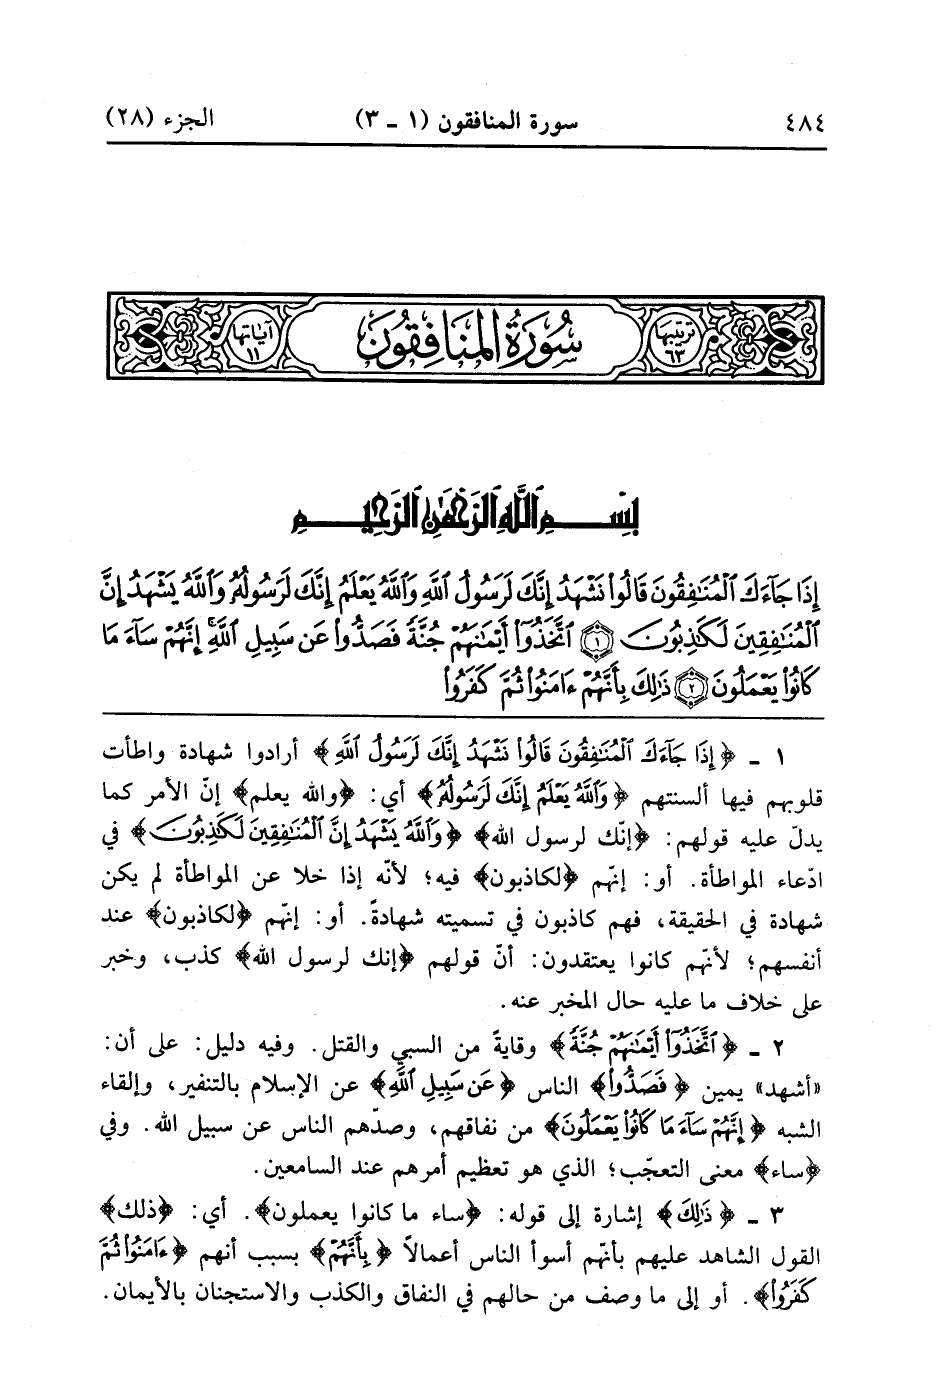 ٤٨٤ سورة المنافقون (١ ـ ٣) الجزء (٢٨)
ترتيبها ٦٣ سُورَةُ المنَافِقُون آياتها ١١
بِسْمِ اللَّهِ الرَّحْمَٰنِ الرَّحِيمِ
إِذَا جَآءَكَ ٱلْمُنَٰفِقُونَ قَالُوا۟ نَشْهَدُ إِنَّكَ لَرَسُولُ ٱللَّهِ وَٱللَّهُ يَعْلَمُ إِنَّكَ لَرَسُولُهُۥ وَٱللَّهُ يَشْهَدُ إِنَّ
ٱلْمُنَٰفِقِينَ لَكَٰذِبُونَ ﴿١﴾ ٱتَّخَذُوٓا۟ أَيْمَٰنَهُمْ جُنَّةً فَصَدُّوا۟ عَن سَبِيلِ ٱللَّهِۚ إِنَّهُمْ سَآءَ مَا
كَانُوا۟ يَعْمَلُونَ ﴿٢﴾ ذَٰلِكَ بِأَنَّهُمْ ءَامَنُوا۟ ثُمَّ كَفَرُوا۟
١ ـ ﴿إِذَا جَآءَكَ ٱلْمُنَٰفِقُونَ قَالُوا۟ نَشْهَدُ إِنَّكَ لَرَسُولُ ٱللَّهِ﴾ أرادوا شهادة واطأت
قلوبهم فيها ألسنتهم ﴿وَٱللَّهُ يَعْلَمُ إِنَّكَ لَرَسُولُهُۥ﴾ أي: ﴿والله يعلم﴾ إنّ الأمر كما
يدلّ عليه قولهم: ﴿إنّك لرسول الله﴾ ﴿وَٱللَّهُ يَشْهَدُ إِنَّ ٱلْمُنَٰفِقِينَ لَكَٰذِبُونَ﴾ في
ادّعاء المواطأة. أو: إنّهم ﴿لكاذبون﴾ فيه؛ لأنّه إذا خلا عن المواطأة لم يكن
شهادة في الحقيقة، فهم كاذبون في تسميته شهادةً. أو: إنّهم ﴿لكاذبون﴾ عند
أنفسهم؛ لأنّهم كانوا يعتقدون: أنّ قولهم ﴿إنك لرسول الله﴾ كذب، وخبر
على خلاف ما عليه حال المخبر عنه.
٢ ـ ﴿ٱتَّخَذُوٓا۟ أَيْمَٰنَهُمْ جُنَّةً﴾ وقايةً من السبي والقتل. وفيه دليل: على أن:
«أشهد» يمين ﴿فَصَدُّوا۟﴾ الناس ﴿عَن سَبِيلِ ٱللَّهِ﴾ عن الإسلام بالتنفير، وإلقاء
الشبه ﴿إِنَّهُمْ سَآءَ مَا كَانُوا۟ يَعْمَلُونَ﴾ من نفاقهم، وصدّهم الناس عن سبيل الله. وفي
﴿ساء﴾ معنى التعجّب؛ الذي هو تعظيم أمرهم عند السامعين.
٣ ـ ﴿ذَٰلِكَ﴾ إشارة إلى قوله: ﴿ساء ما كانوا يعملون﴾. أي: ﴿ذلك﴾
القول الشاهد عليهم بأنّهم أسوأ الناس أعمالاً ﴿بِأَنَّهُمْ﴾ بسبب أنهم ﴿ءَامَنُوا۟ ثُمَّ
كَفَرُوا۟﴾. أو إلى ما وصف من حالهم في النفاق والكذب والاستجنان بالأيمان.